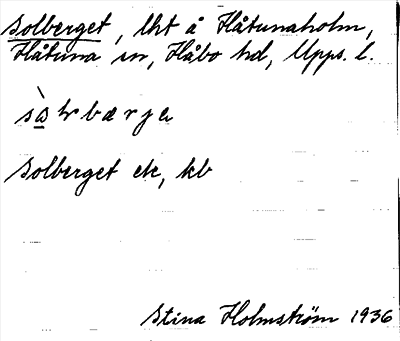 Solberget, lht å Håtunaholm,
Håtuna sn, Håbo hd, Upps. l.
Solberget etc, kb
Stina Holmström 1936